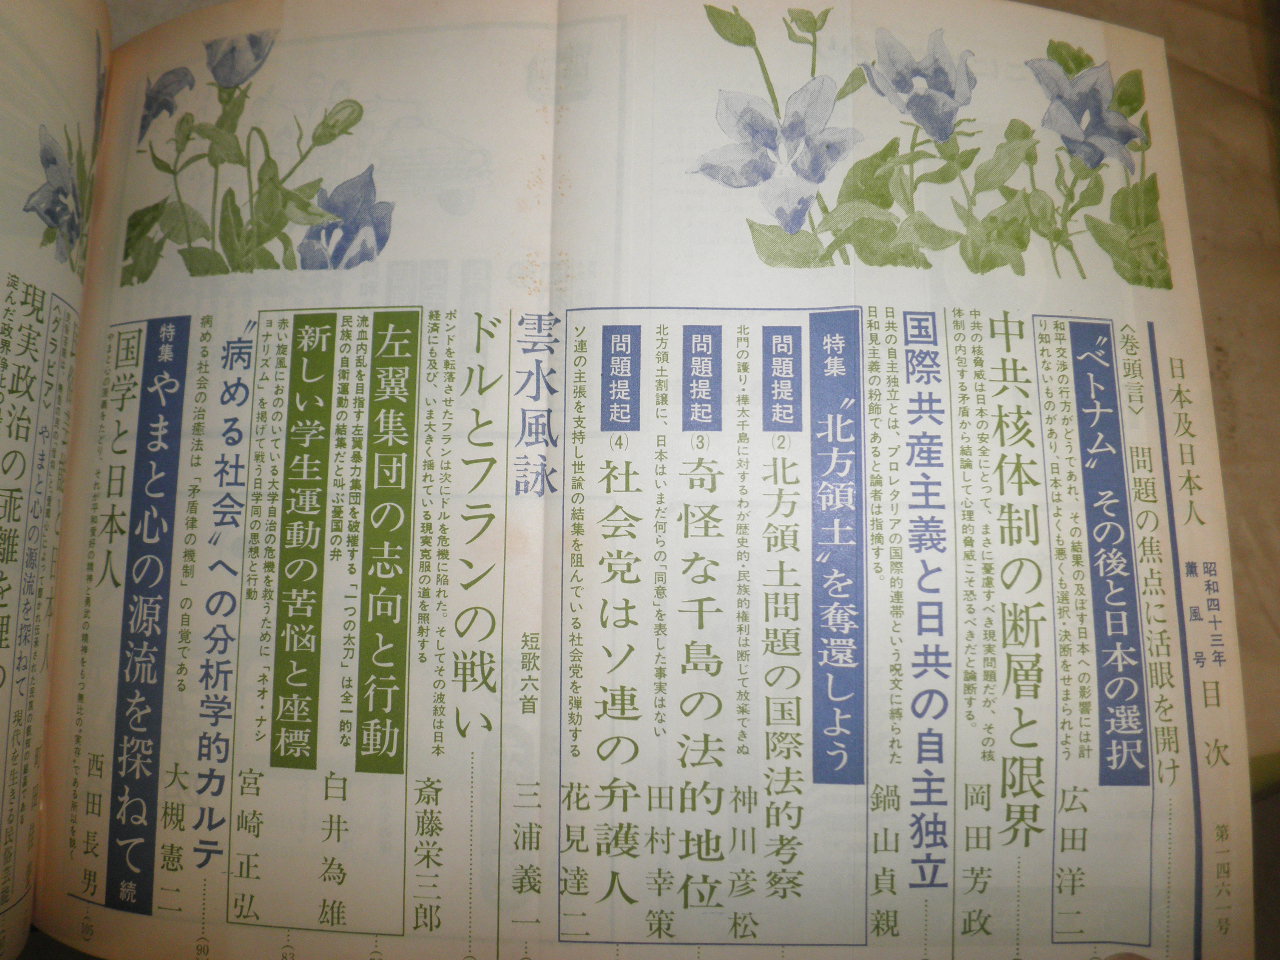 日本及日本人 昭和四十三年 薫風号 目次 第一四六一号
〈巻頭言〉 問題の焦点に活眼を開け
〝ベトナム〟その後と日本の選択 広田洋二
和平交渉の行方がどうであれ、その結果の及ぼす日本への影響には計
り知れないものがあり、日本はよくも悪くも選択・決断をせまられよう
中共核体制の断層と限界 岡田芳政
中共の核脅威は日本の安全にとって、まさに憂慮すべき現実問題だが、その核
体制の内包する矛盾から結論して心理的脅威こそ恐るべきだと論断する。
国際共産主義と日共の自主独立 鍋山貞親
日共の自主独立とは、プロレタリアの国際的連帯という呪文に縛られた
日和見主義の粉飾であると論者は指摘する。
特集 〝北方領土〟を奪還しよう
問題提起 (2) 北方領土問題の国際法的考察 神川彦松
北門の護り・樺太千島に対するわが歴史的・民族的権利は断じて放棄できぬ
問題提起 (3) 奇怪な千島の法的地位 田村幸策
北方領土割譲に、日本はいまだ何らの「同意」を表した事実はない
問題提起 (4) 社会党はソ連の弁護人 花見達二
ソ連の主張を支持し世論の結集を阻んでいる社会党を弾劾する
雲水風詠 短歌六首 三浦義一
ドルとフランの戦い 斎藤栄三郎
ポンドを転落させたフランは次にドルを危機に陥れた。そしてその波紋は日本
経済にも及び、いま大きく揺れている現実克服の道を照射する
左翼集団の志向と行動 白井為雄
流血内乱を目指す左翼暴力集団を破摧する「一つの太刀」は全一的な
民族の自衛運動の結集だと叫ぶ憂国の弁
新しい学生運動の苦悩と座標 宮崎正弘
赤い旋風におののいている大学自治の危機を救うために「ネオ・ナシ
ョナリズム」を掲げて戦う日学同の思想と行動
〝病める社会〟への分析学的カルテ 大槻憲二 (90)
病める社会の治癒法は「矛盾律の機制」の自覚である
特集 やまと心の源流を探ねて 続
国学と日本人 西田長男 (105)
〈グラビア〉やまと心の源流を探ねて 現代を生きる民俗芸能
現実政治の乖離を理